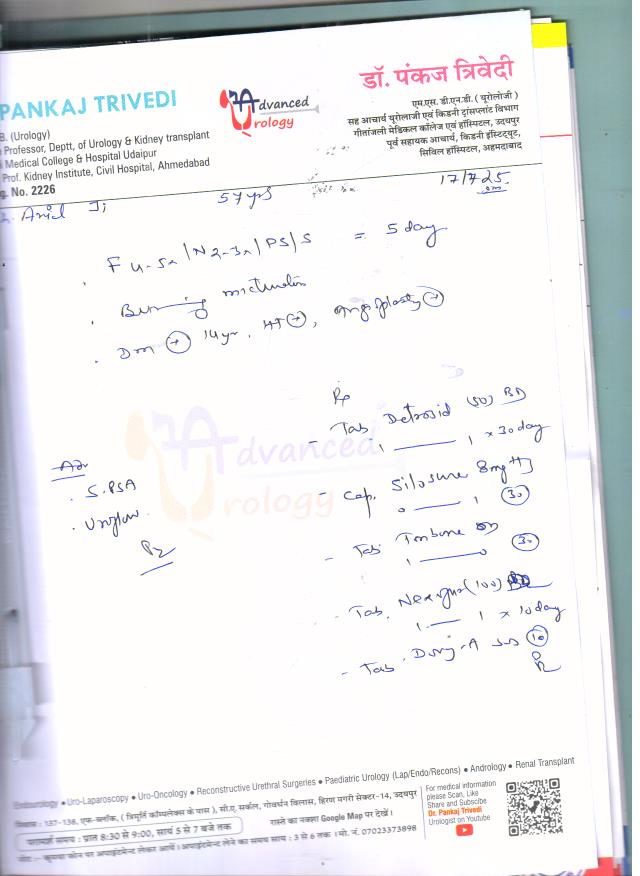 PANKAJ TRIVEDI
B. (Urology)
Professor, Deptt, of Urology & Kidney transplant
Medical College & Hospital Udaipur
Prof. Kidney Institute, Civil Hospital, Ahmedabad
g. No. 2226
Advanced
Urology
डॉ. पंकज त्रिवेदी
एम.एस. डी.एन.बी. (यूरोलोजी)
सह आचार्य यूरोलोजी एवं किडनी ट्रांसप्लांट विभाग
गीतांजली मेडिकल कॉलेज एवं हॉस्पिटल, उदयपुर
पूर्व सहायक आचार्य, किडनी इंस्टिट्यूट,
सिविल हॉस्पिटल, अहमदाबाद
Anil Ji 57 yrs 17/7/25
F 4-5x/N2-3x/PS/S = 5 day
Burning micturition
Dm + 14yr. HT +, Angioplasty +
Rp
Tab. BD
1 1 x 30 day
Adv
S. PSA
Uroflow
Advanced
Urology
Cap. Silosure 8mg
0 1 30
Tab. 30
1 0
Tab. (100) BD
1 1 x 10 day
Tab. -A sos 10
Endourology • Uro-Laparoscopy • Uro-Oncology • Reconstructive Urethral Surgeries • Paediatric Urology (Lap/Endo/Recons) • Andrology • Renal Transplant
निवास : 137-138, एफ-ब्लॉक, (त्रिमूर्ति कॉम्पलेक्स के पास), सी.ए. सर्कल, गोवर्धन विलास, हिरण मगरी सेक्टर-14, उदयपुर
परामर्श समय : प्रात 8:30 से 9:00, सायं 5 से 7 बजे तक रास्ते का नक्शा Google Map पर देखें।
नोट :- कृपया फोन पर अपॉइंटमेन्ट लेकर आयें। अपॉइंटमेन्ट लेने का समय सायं : 3 से 6 तक। मो. नं. 07023373898
For medical information
please Scan, Like
Share and Subscibe
Dr. Pankaj Trivedi
Urologist on Youtube